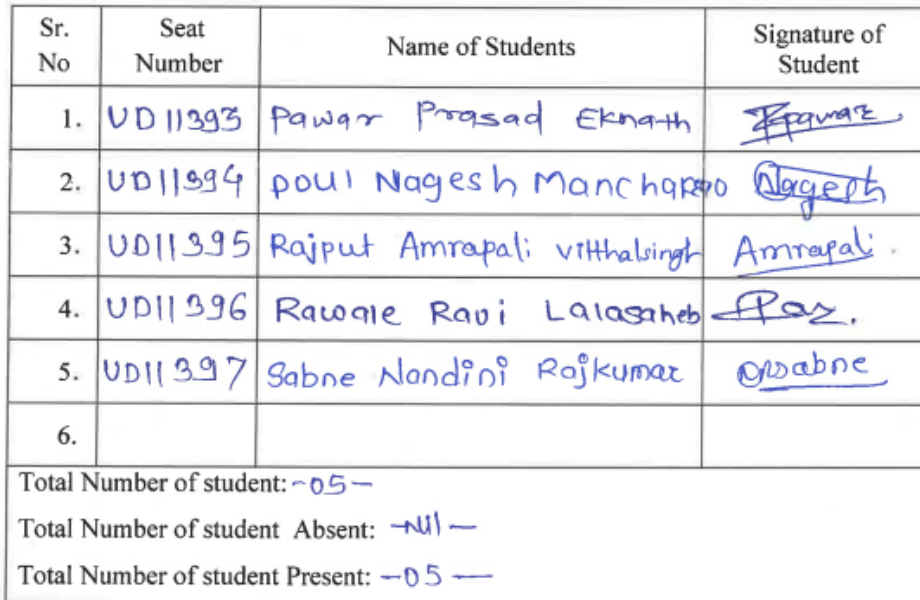 Sr. No Seat Number Name of Students Signature of Student
1. UD11393 Pawar Prasad Eknath Ppawar
2. UD11394 poul Nagesh Mancharao Nagesh
3. UD11395 Rajput Amrapali vitthalsingh Amrapali
4. UD11396 Rawale Ravi Lalasaheb
5. UD11397 Sabne Nandini Rajkumar nrsabne
6.
Total Number of student: -05-
Total Number of student Absent: -Nil-
Total Number of student Present: -05-